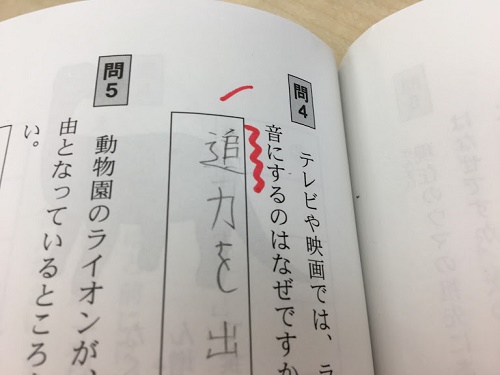 問4
テレビや映画では、ラ
音にするのはなぜですか
追力を出
問5
動物園のライオンが、
由となっているところ
い。